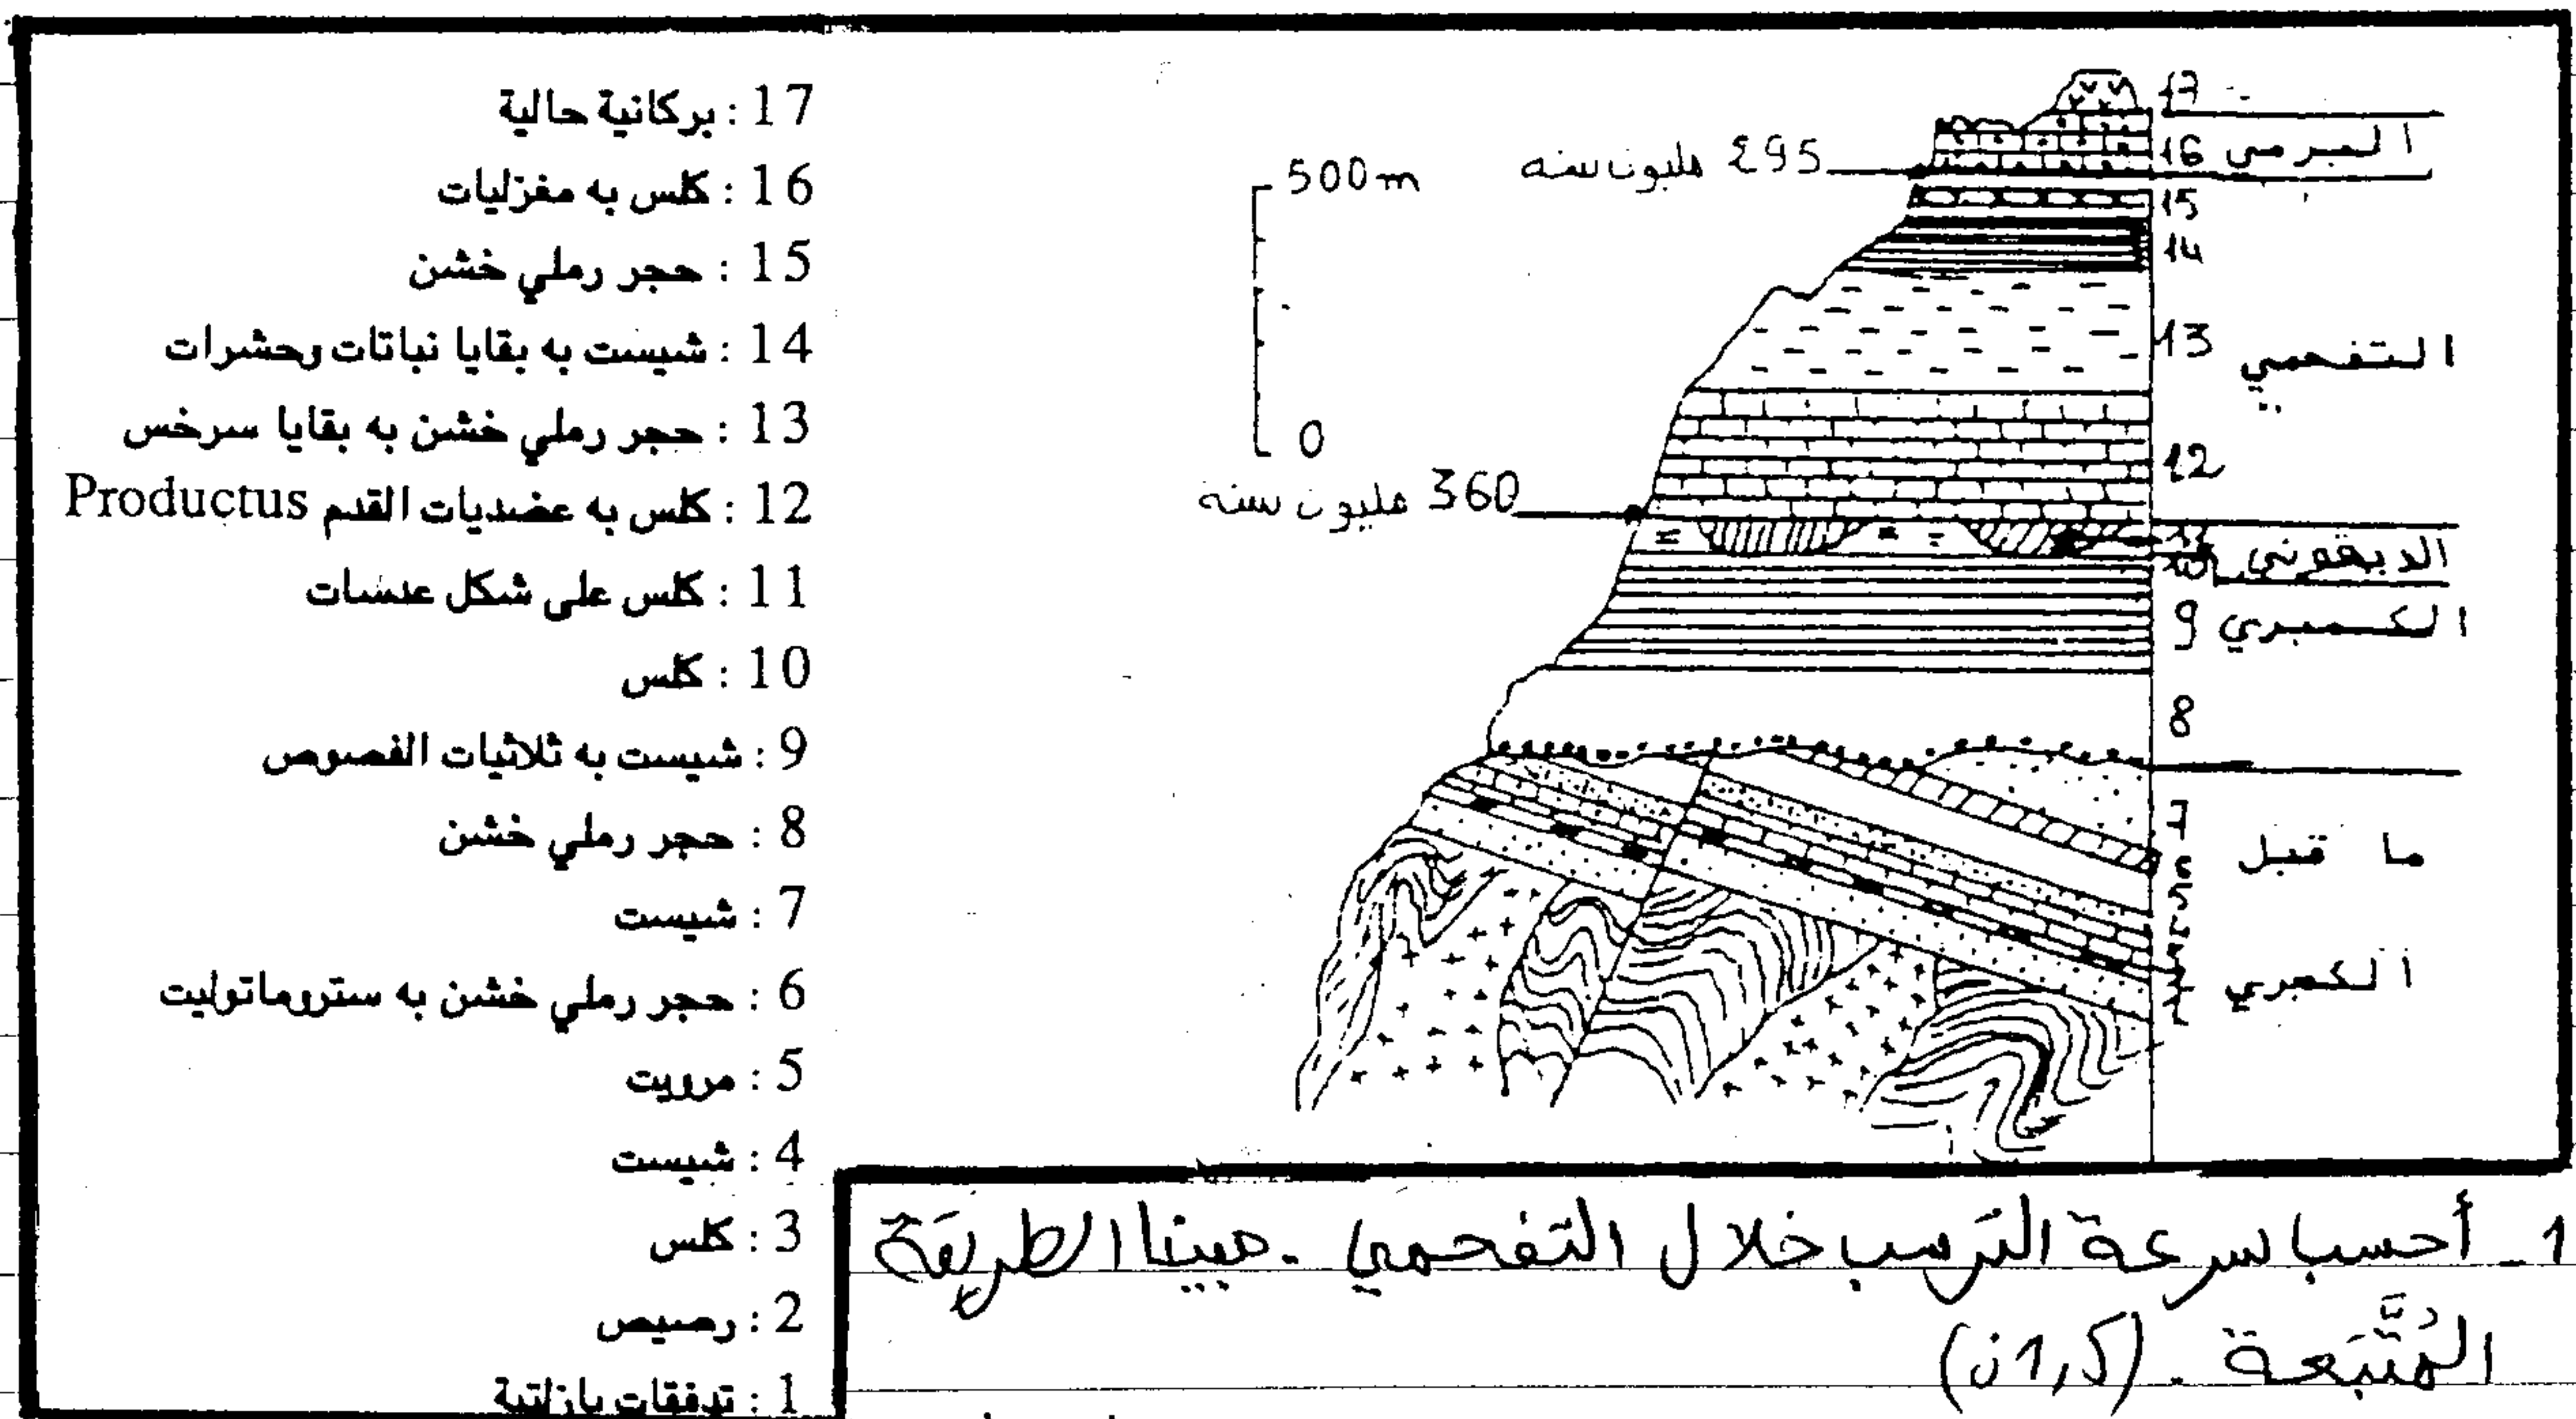 17 : بركانية حالية
16 : كلس به مغزليات
15 : حجر رملي خشن
14 : شيست به بقايا نباتات وحشرات
13 : حجر رملي خشن به بقايا سرخس
12 : كلس به عضديات القدم Productus
11 : كلس على شكل عدسات
10 : كلس
9 : شيست به ثلاثيات الفصوص
8 : حجر رملي خشن
7 : شيست
6 : حجر رملي خشن به ستروماتوليت
5 : مرويت
4 : شيست
3 : كلس
2 : رصيص
1 : تدفقات بازلتية
500m
0
295 مليون سنة
360 مليون سنة
17
16 البرمي
15
14
13 التفحمي
12
الديفوني
9 الكمبري
8
7
ما قبل
الكمبري
1 - أحسب سرعة الترسب خلال التفحمي . مبينا الطريقة
المُتَّبَعة . (1,5ن)